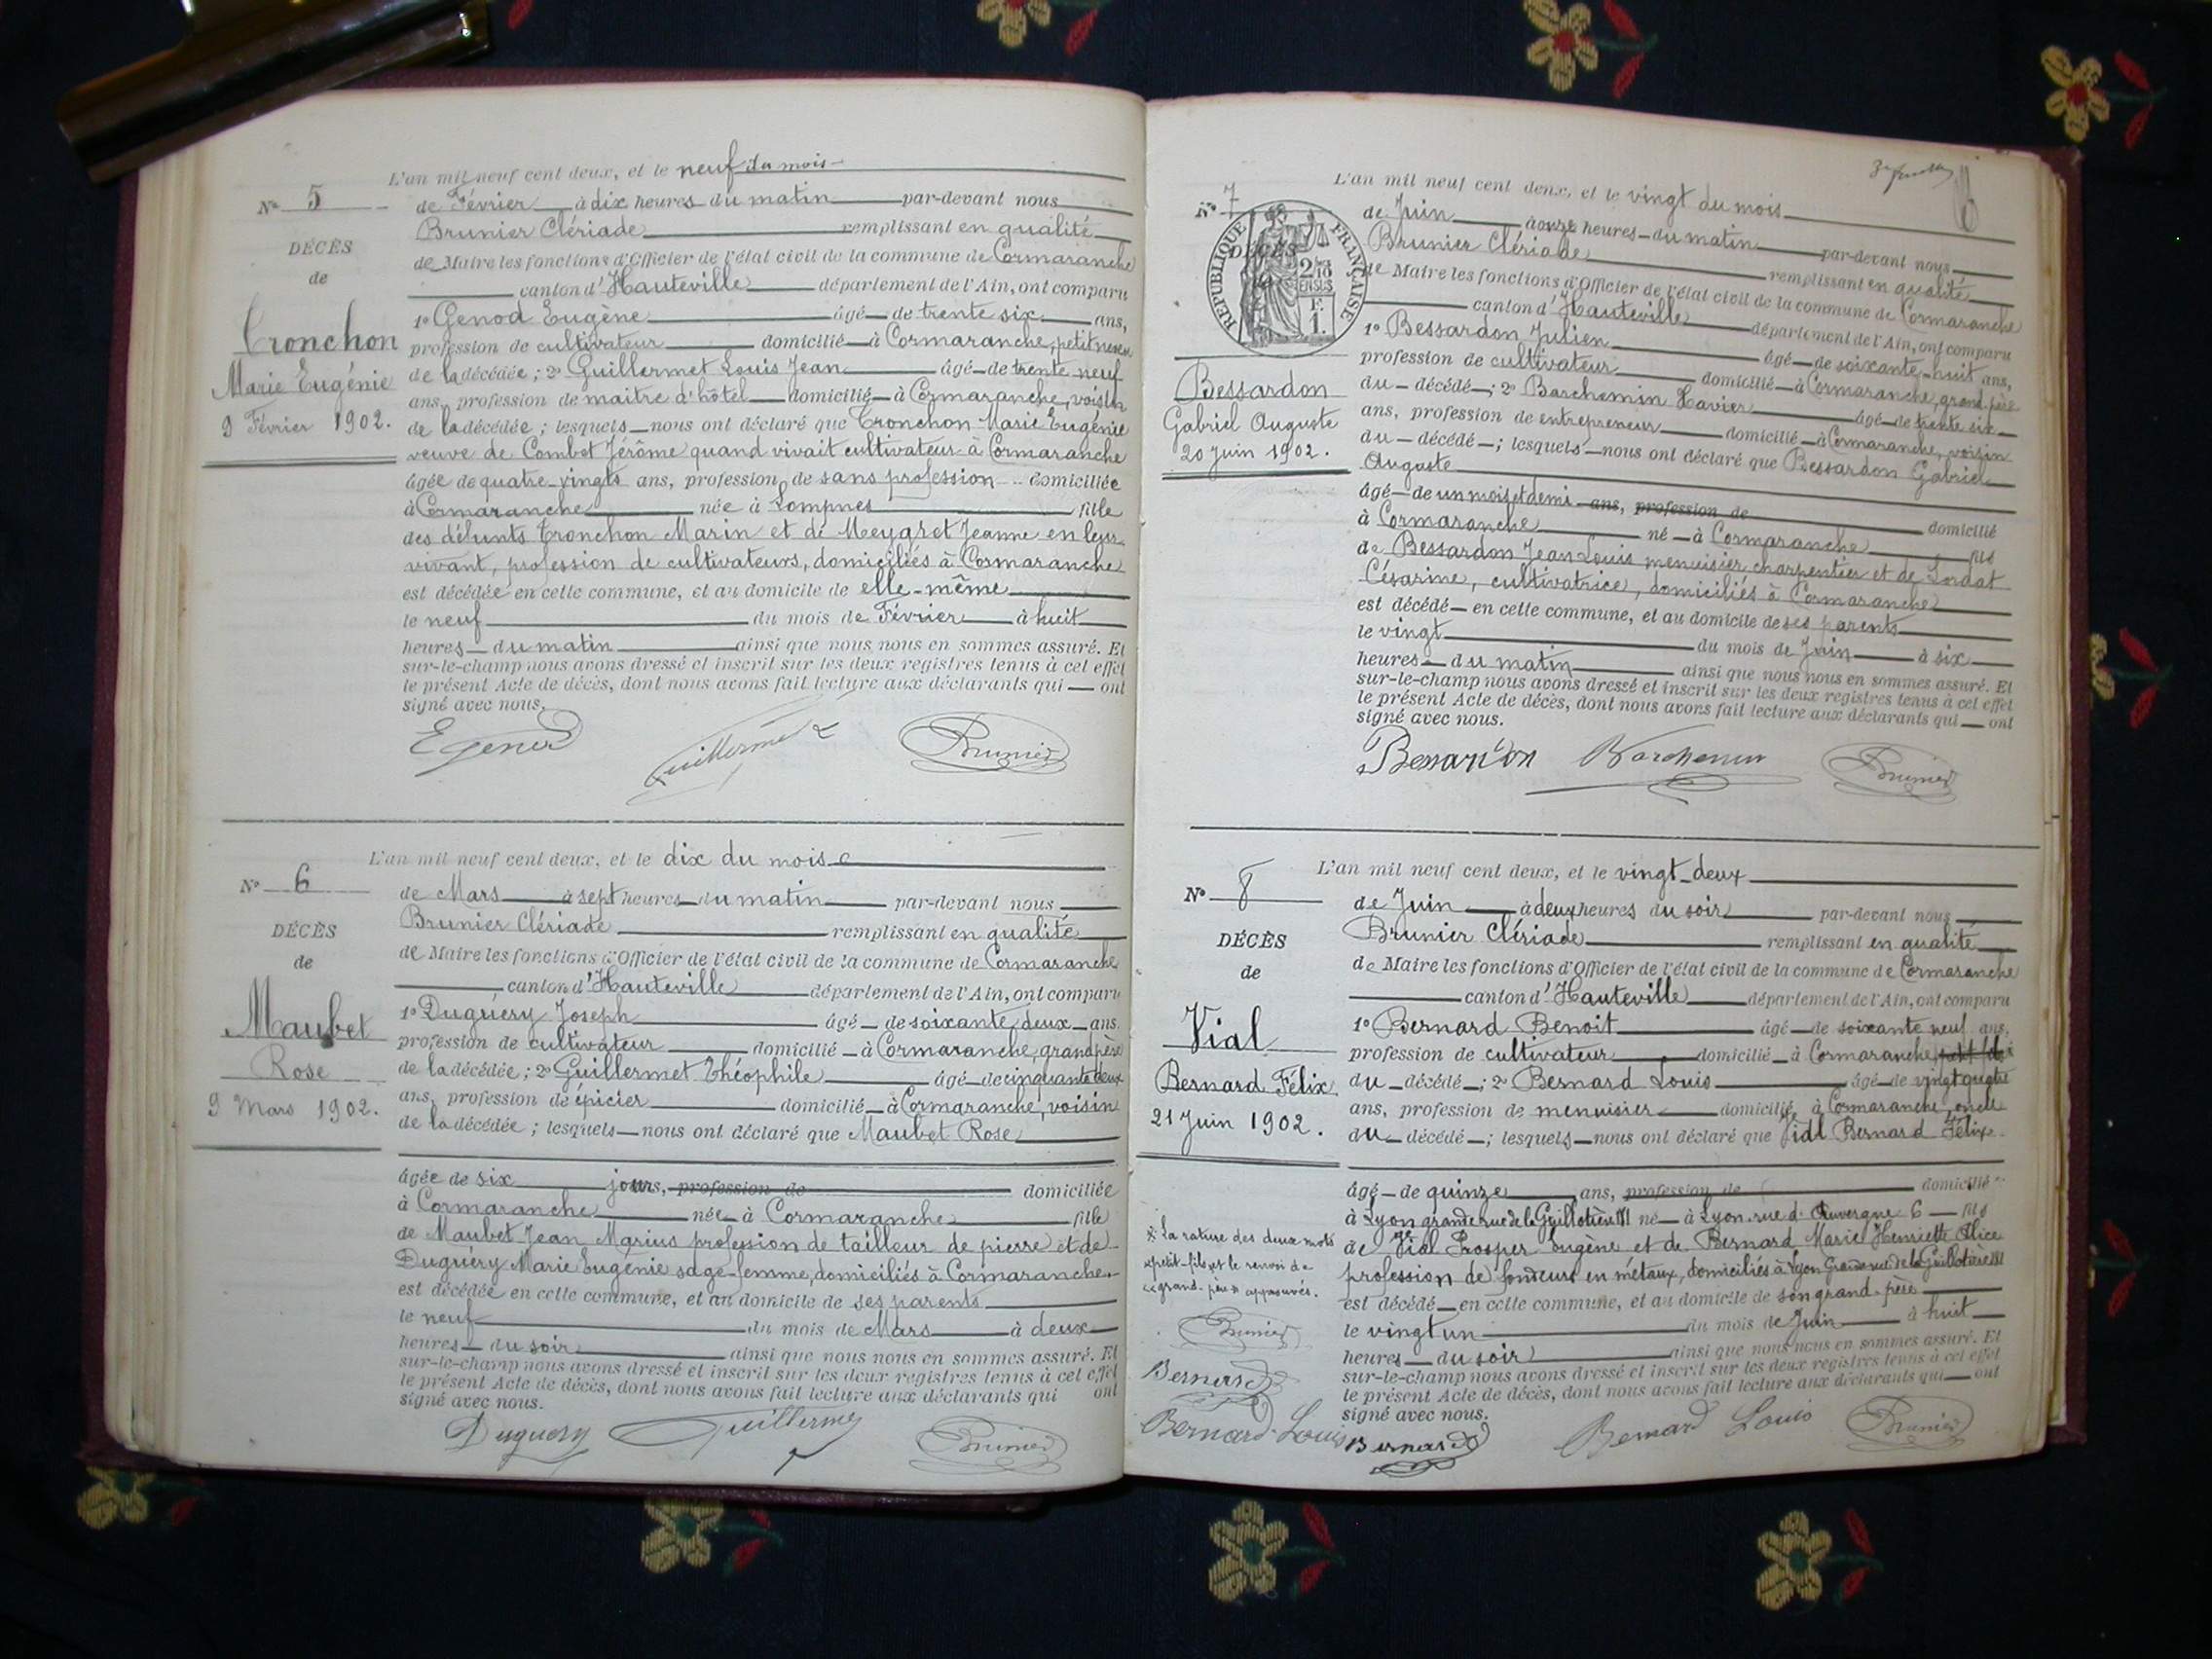 L'an mil neuf cent deux, et le neuf du mois
N° 5
de Février à dix heures du matin par-devant nous
Brunier Clériade remplissant en qualité
DÉCÈS
de Maire les fonctions d'Officier de l'état civil de la commune de Cormaranche
de
canton d'Hauteville département de l'Ain, ont comparu
1° Genod Eugène âgé de trente six ans,
Tronchon
profession de cultivateur domicilié à Cormaranche, petit neveu
Marie Eugénie
de la décédée ; 2° Guillermet Louis Jean âgé de trente neuf
ans, profession de maitre d'hôtel domicilié à Cormaranche, voisin
9 Février 1902.
de la décédée ; lesquels nous ont déclaré que Tronchon Marie Eugénie
veuve de Combet Jérôme quand vivait cultivateur à Cormaranche
âgée de quatre-vingts ans, profession de sans profession domiciliée
à Cormaranche née à Lompnes fille
des défunts Tronchon Marin et de Meygret Jeanne en leur
vivant, profession de cultivateurs, domiciliés à Cormaranche
est décédée en cette commune, et au domicile de elle-même
le neuf du mois de Février à huit
heures du matin ainsi que nous nous en sommes assuré. Et
sur-le-champ nous avons dressé et inscrit sur les deux registres tenus à cet effet
le présent Acte de décès, dont nous avons fait lecture aux déclarants qui ont
signé avec nous.
E Genod Guillermet Brunier
L'an mil neuf cent deux, et le dix du mois
N° 6
de Mars à sept heures du matin par-devant nous
Brunier Clériade remplissant en qualité
DÉCÈS
de Maire les fonctions d'Officier de l'état civil de la commune de Cormaranche
de
canton d'Hauteville département de l'Ain, ont comparu
1° Duguéry Joseph âgé de soixante deux ans
Maubet
profession de cultivateur domicilié à Cormaranche, grand père
Rose
de la décédée ; 2° Guillermet Théophile âgé de cinquante deux
ans, profession de épicier domicilié à Cormaranche, voisin
9 Mars 1902.
de la décédée ; lesquels nous ont déclaré que Maubet Rose
âgée de six jours, profession de domiciliée
à Cormaranche née à Cormaranche fille
de Maubet Jean Marius profession de tailleur de pierre et de
Duguéry Marie Eugénie sage-femme, domiciliés à Cormaranche
est décédée en cette commune, et au domicile de ses parents
le neuf du mois de Mars à deux
heures du soir ainsi que nous nous en sommes assuré. Et
sur-le-champ nous avons dressé et inscrit sur les deux registres tenus à cet effet
le présent Acte de décès, dont nous avons fait lecture aux déclarants qui ont
signé avec nous.
Duguery Guillermet Brunier
L'an mil neuf cent deux, et le vingt du mois
N° 7
de Juin à onze heures du matin par-devant nous
RÉPUBLIQUE FRANÇAISE
2/10 EN SUS
F. 1.
DÉCÈS
Brunier Clériade remplissant en qualité
de Maire les fonctions d'Officier de l'état civil de la commune de Cormaranche
canton d'Hauteville département de l'Ain, ont comparu
1° Bessardon Julien âgé de soixante-huit ans,
profession de cultivateur domicilié à Cormaranche, grand père
Bessardon
du décédé ; 2° Barchemin Xavier âgé de trente six
Gabriel Auguste
ans, profession de entrepreneur domicilié à Cormaranche, voisin
20 Juin 1902.
du décédé ; lesquels nous ont déclaré que Bessardon Gabriel
Auguste
âgé de un mois et demi ans, profession de domicilié
à Cormaranche né à Cormaranche fils
de Bessardon Jean Louis menuisier charpentier et de Lordat
Césarine, cultivatrice, domiciliés à Cormaranche
est décédé en cette commune, et au domicile de ses parents
le vingt du mois de Juin à six
heures du matin ainsi que nous nous en sommes assuré. Et
sur-le-champ nous avons dressé et inscrit sur les deux registres tenus à cet effet
le présent Acte de décès, dont nous avons fait lecture aux déclarants qui ont
signé avec nous.
Bessardon Barchemin Brunier
L'an mil neuf cent deux, et le vingt-deux
N° 8
de Juin à deux heures du soir par-devant nous
Brunier Clériade remplissant en qualité
DÉCÈS
de Maire les fonctions d'Officier de l'état civil de la commune de Cormaranche
de
canton d'Hauteville département de l'Ain, ont comparu
1° Bernard Benoit âgé de soixante neuf ans,
Vial
profession de cultivateur domicilié à Cormaranche petit fils
Bernard Félix
du décédé ; 2° Bernard Louis âgé de vingt quatre
ans, profession de menuisier domicilié à Cormaranche, oncle
21 Juin 1902.
du décédé ; lesquels nous ont déclaré que Vial Bernard Félix
âgé de quinze ans, profession de domicilié
à Lyon grande rue de la Guillotière né à Lyon rue d'Auvergne 6 fils
de Vial Prosper Eugène et de Bernard Marie Henriette Alice
profession de fondeurs en métaux, domiciliés à Lyon Grande rue de la Guillotière
est décédé en cette commune, et au domicile de son grand-père
le vingt un du mois de Juin à huit
heures du soir ainsi que nous nous en sommes assuré. Et
sur-le-champ nous avons dressé et inscrit sur les deux registres tenus à cet effet
le présent Acte de décès, dont nous avons fait lecture aux déclarants qui ont
signé avec nous.
La rature des deux mots
"petit-fils" et le renvoi de
"grand-père" approuvés.
Brunier
Bernard
Bernard Louis
Bernard Bernard Louis Brunier